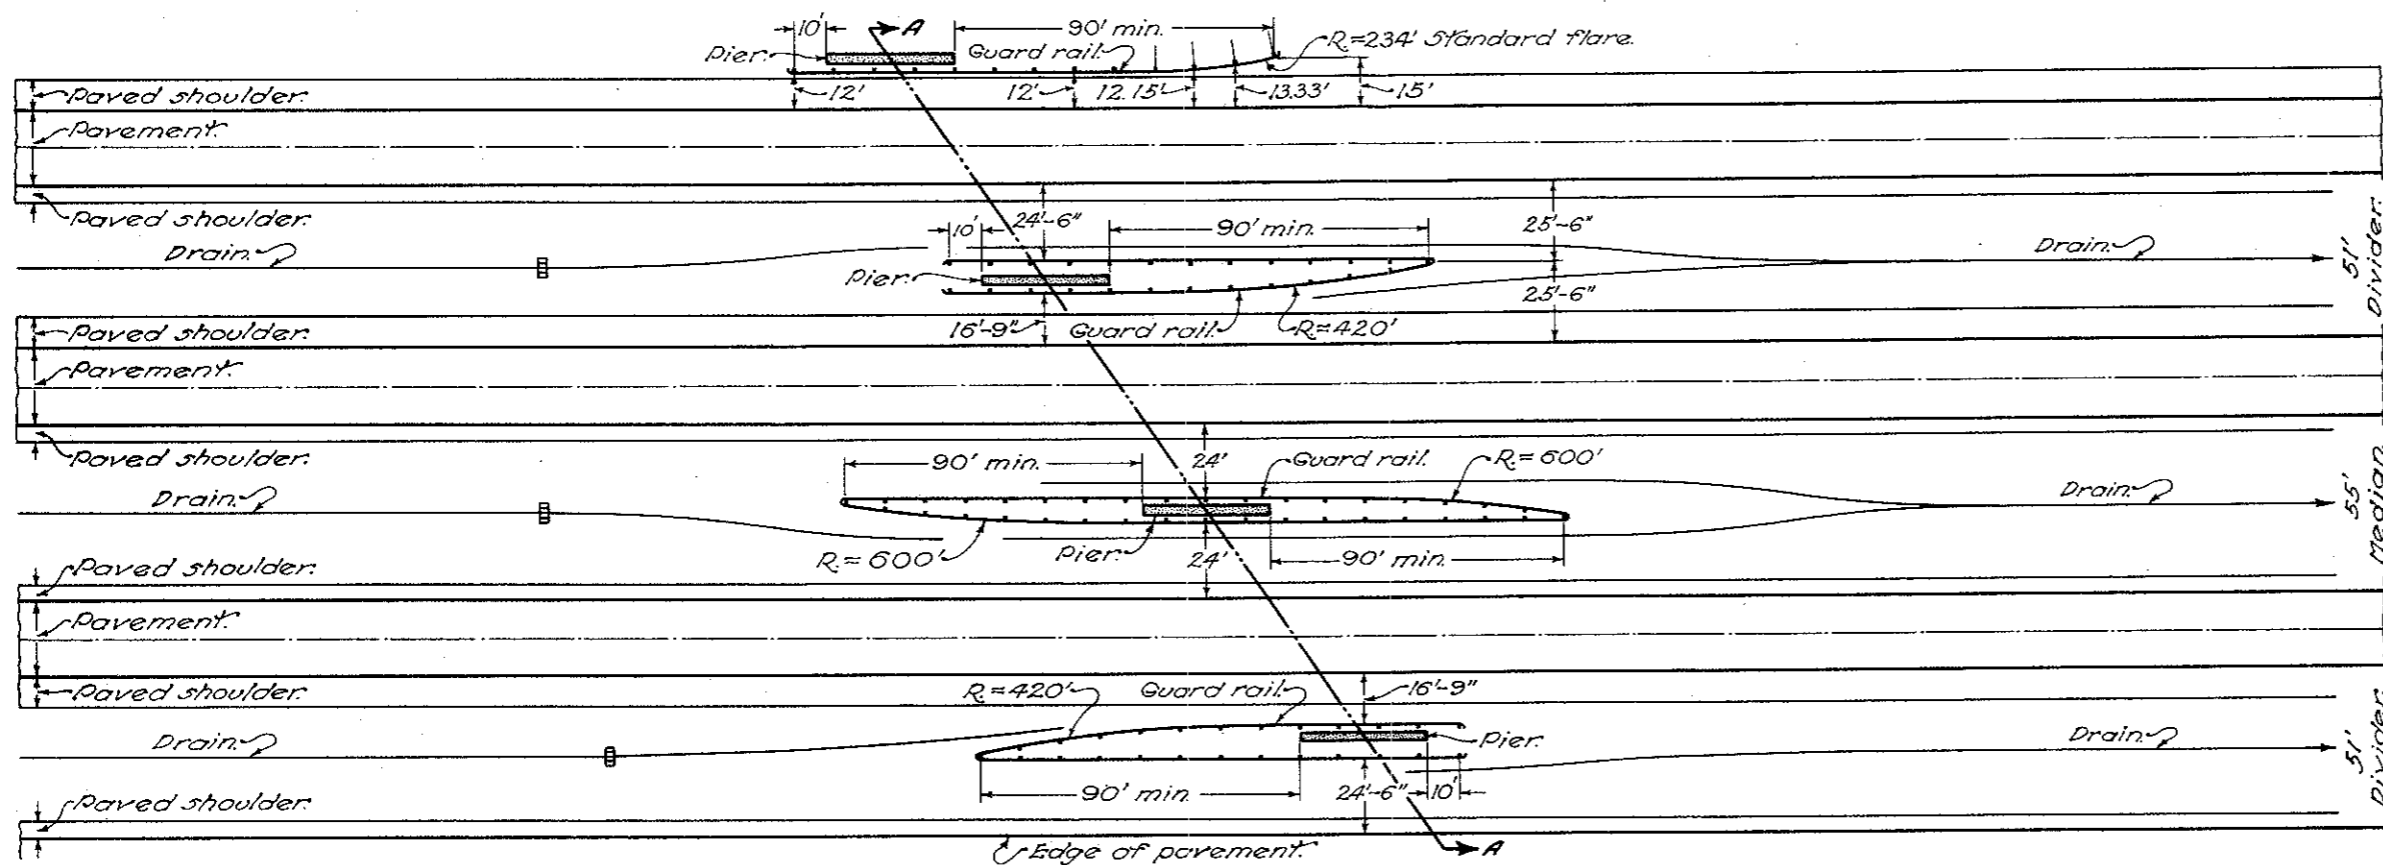 10'
A
90' min.
Pier.
Guard rail.
R.=234' Standard flare.
Paved shoulder.
12'
12'
12.15'
13.33'
15'
Pavement.
Paved shoulder.
24'-6"
25'-6"
10'
90' min.
Drain.
Drain.
Pier.
25'-6"
51'
Divider.
Paved shoulder.
16'-9"
Guard rail.
R.=420'
Pavement.
Paved shoulder.
90' min.
24'
Guard rail.
R.=600'
Drain.
Drain.
55'
Median.
R.=600'
Pier.
24'
90' min.
Paved shoulder.
Pavement.
Paved shoulder.
R.=420'
Guard rail.
16'-9"
Drain.
Pier.
Drain.
51'
Divider.
90' min.
24'-6"
10'
Paved shoulder.
Edge of pavement.
A